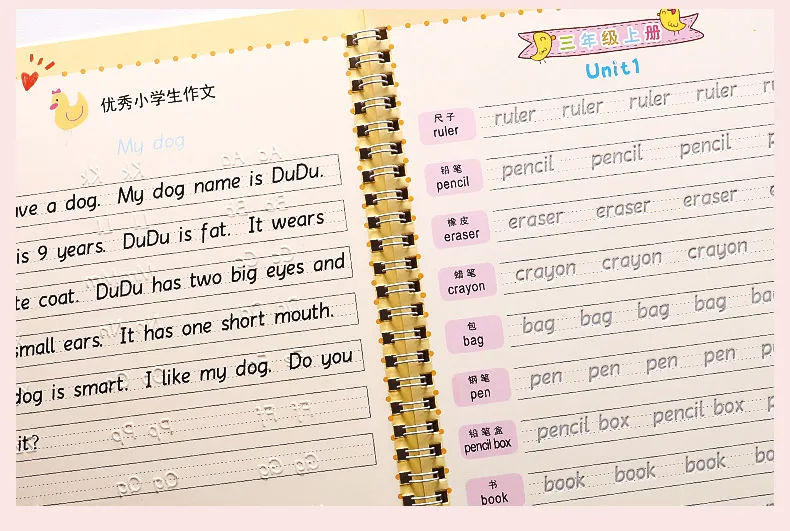 优秀小学生作文
My dog
ave a dog. My dog name is DuDu.
is 9 years. DuDu is fat. It wears
te coat. DuDu has two big eyes and
small ears. It has one short mouth.
dog is smart. I like my dog. Do you
it?
三年级上册
Unit1
尺子
ruler ruler ruler ruler ruler
铅笔
pencil pencil pencil pencil
橡皮
eraser eraser eraser eraser
蜡笔
crayon crayon crayon crayon
包
bag bag bag bag bag ba
钢笔
pen pen pen pen pen p
铅笔盒
pencil box pencil box pencil box
书
book book book book book